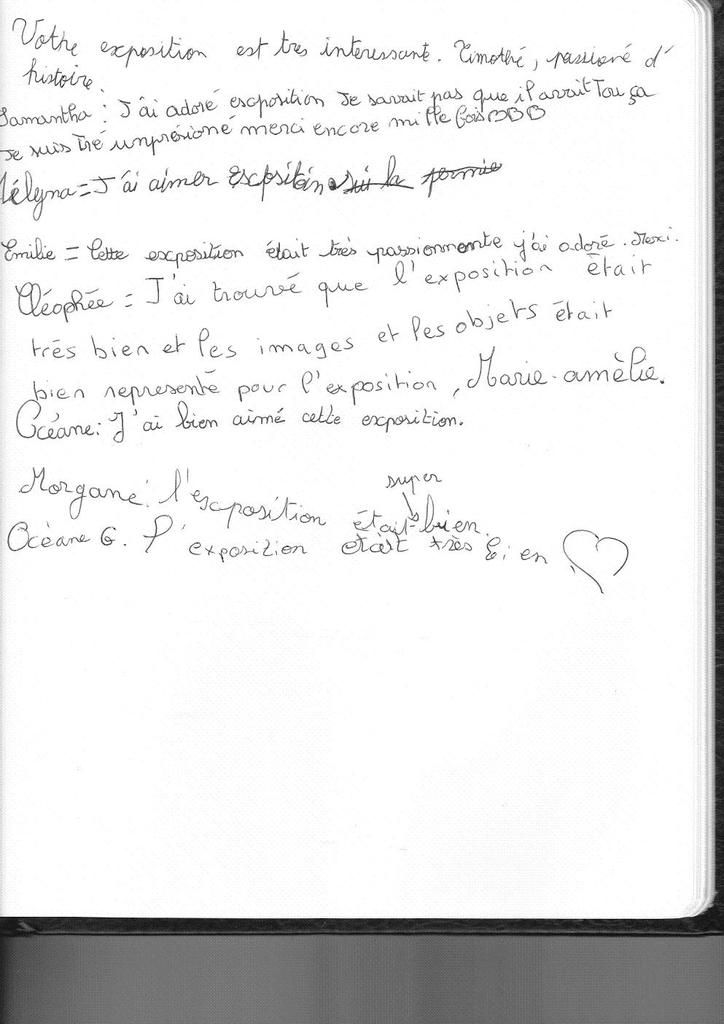 Votre exposition est très interessante. Timothé, passioné d'
histoire.
Samantha : J'ai adoré escposition Je savait pas que il avait Tou ça
Je suis tré unprésioné merci encore mille fois
Mélyna = J'ai aimer escpsition
Emilie = Cette exposition était très passionnante j'ai adoré. Merci.
Cléophée = J'ai trouvé que l'exposition était
très bien et les images et les objets était
bien representé pour l'exposition, Marie-amèlie.
Océane: J'ai bien aimé cette exposition.
super
Morgane: l'escaposition était bien.
Océane G. l'exposition etait très bien